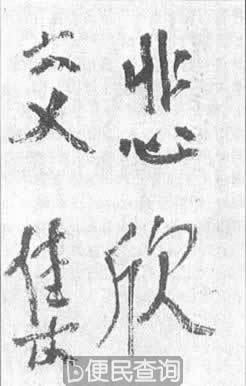 悲欣
交集
b便民查询